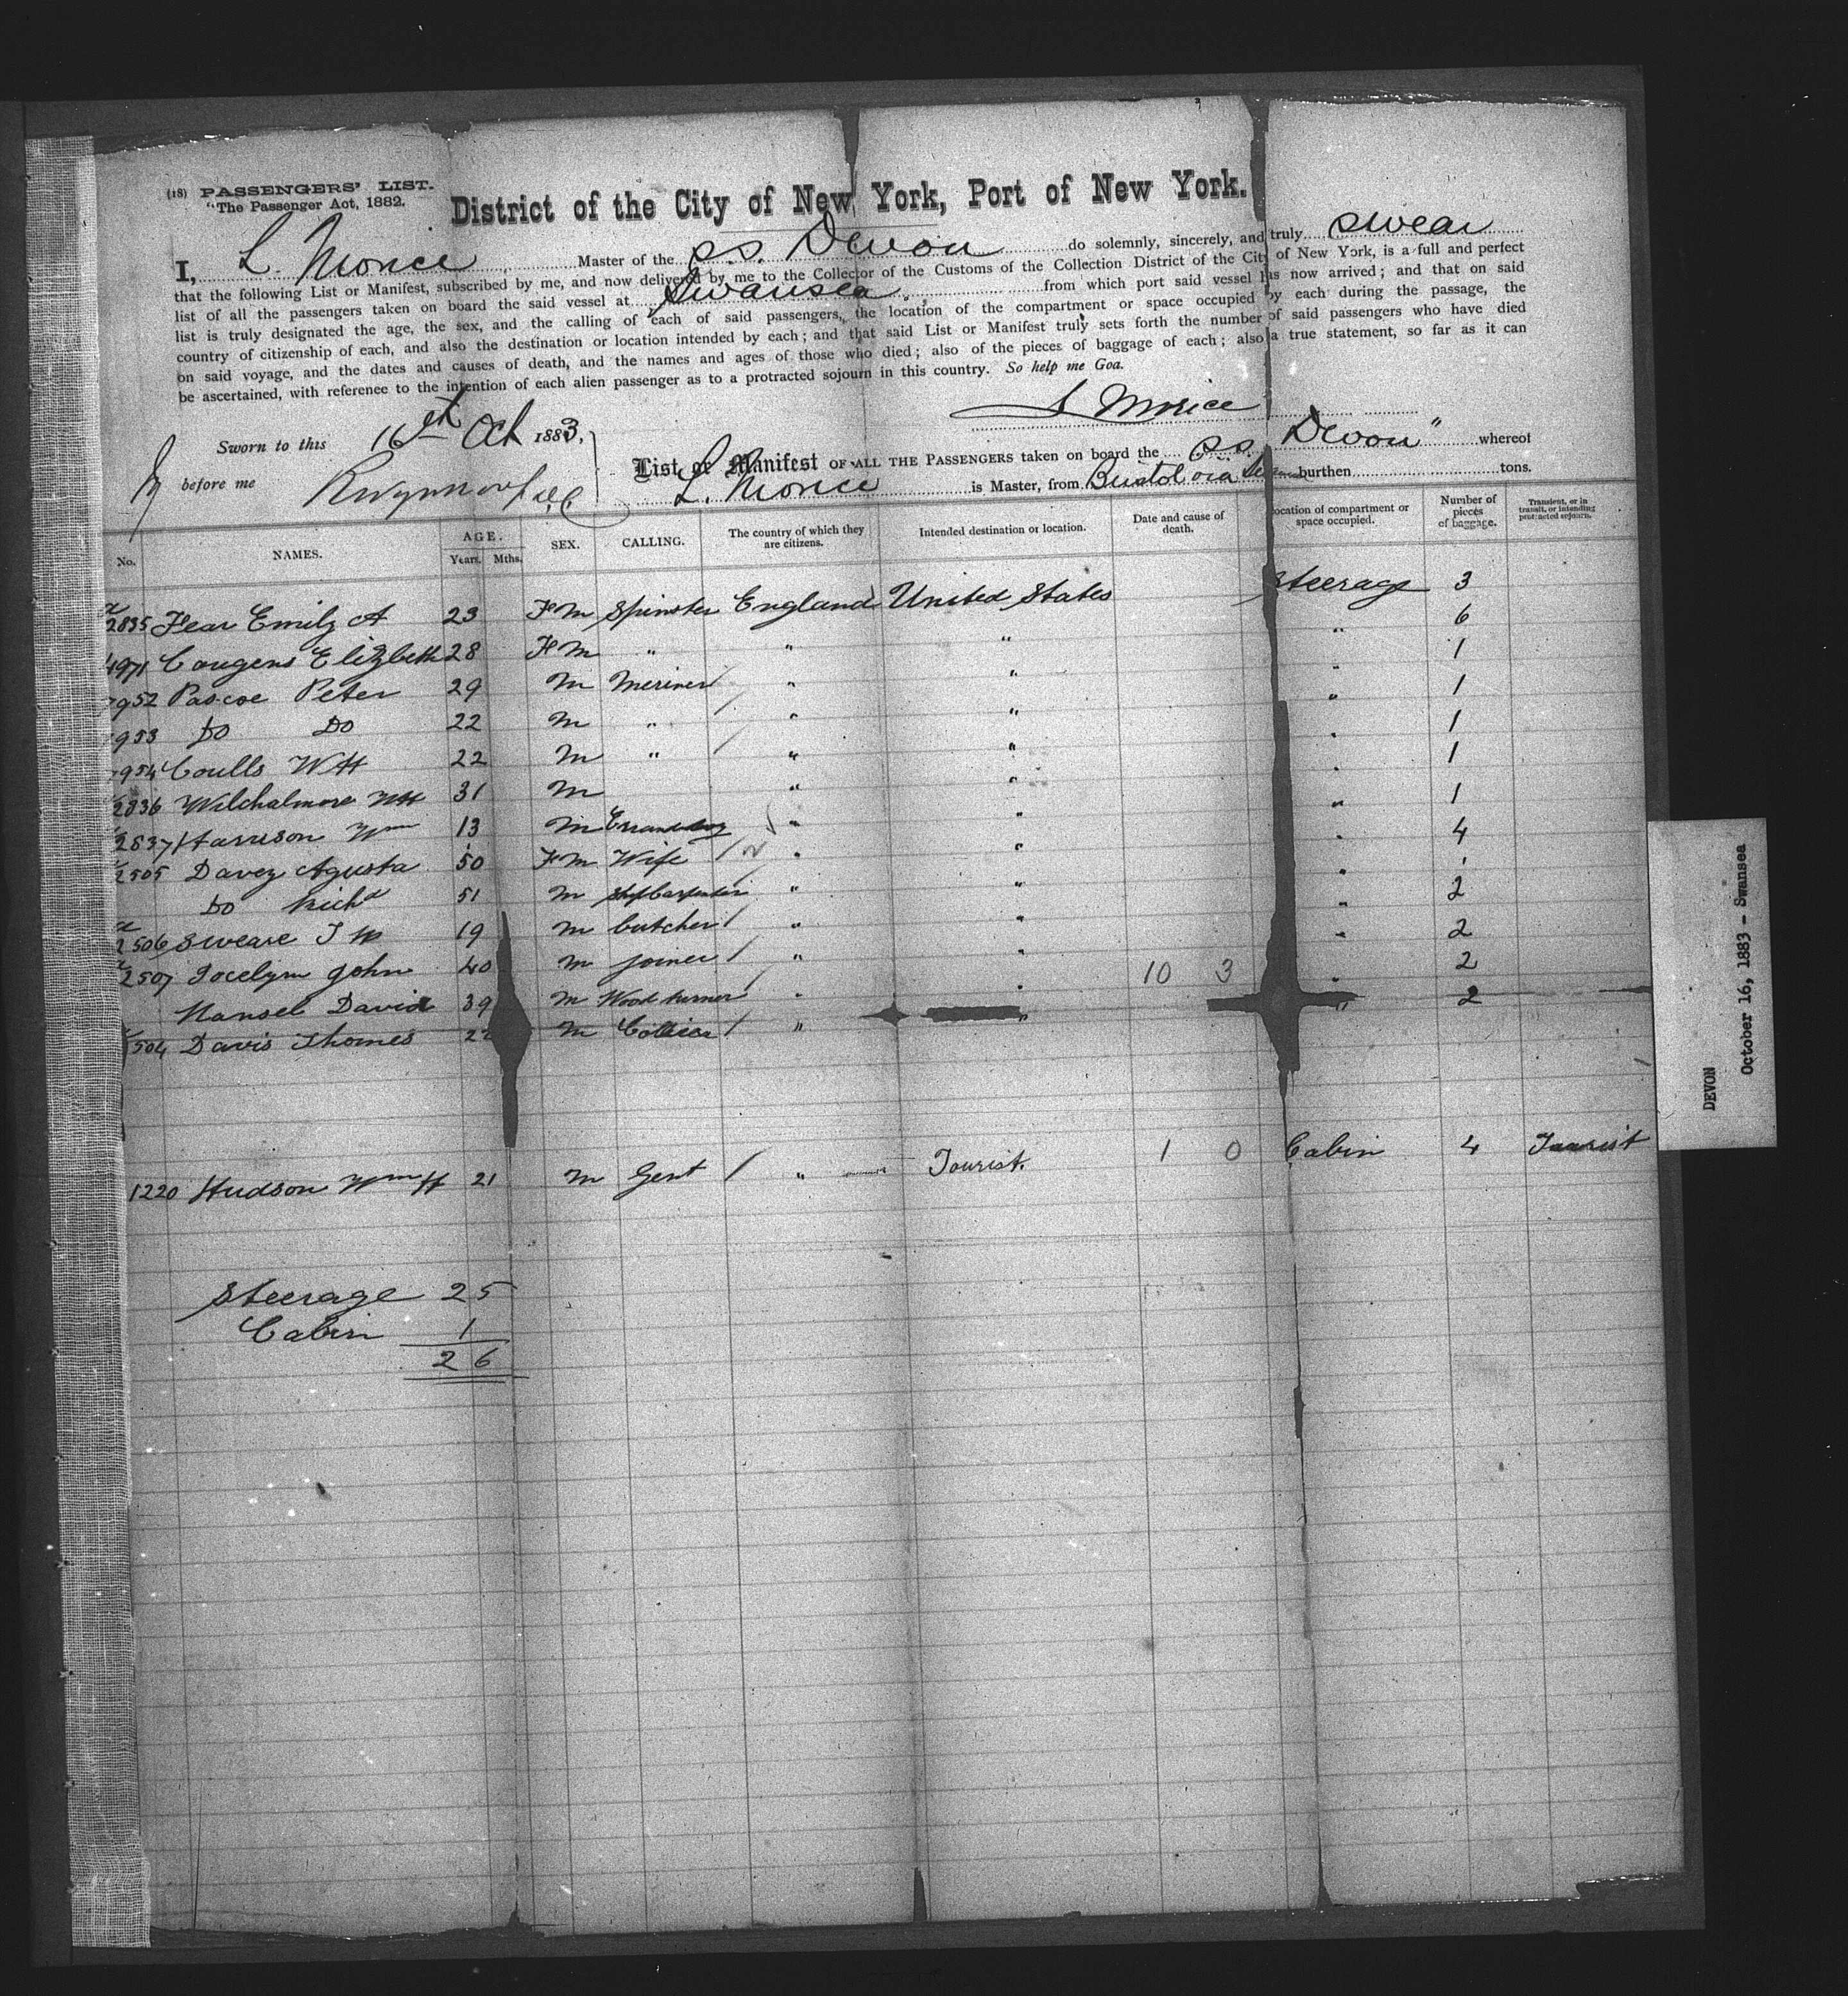 (18) PASSENGERS' LIST.
"The Passenger Act, 1882.
District of the City of New York, Port of New York.
I, L. Morice Master of the S.S. Devon do solemnly, sincerely, and truly swear
that the following List or Manifest, subscribed by me, and now delivered by me to the Collector of the Customs of the Collection District of the City of New York, is a full and perfect
list of all the passengers taken on board the said vessel at Swansea from which port said vessel has now arrived; and that on said
list is truly designated the age, the sex, and the calling of each of said passengers, the location of the compartment or space occupied by each during the passage, the
country of citizenship of each, and also the destination or location intended by each; and that said List or Manifest truly sets forth the number of said passengers who have died
on said voyage, and the dates and causes of death, and the names and ages of those who died; also of the pieces of baggage of each; also a true statement, so far as it can
be ascertained, with reference to the intention of each alien passenger as to a protracted sojourn in this country. So help me God.
L Morice
Sworn to this 16th Oct 1883,
before me
List or Manifest OF ALL THE PASSENGERS taken on board the S.S. Devon" whereof
L. Morice is Master, from Bristol via burthen tons.
No. NAMES. AGE. Years. Mths. SEX. CALLING. The country of which they are citizens. Intended destination or location. Date and cause of death. ocation of compartment or space occupied. Number of pieces of baggage. Transient, or in transit, or intending protracted sojourn.
2835 Fear Emily A 23 Fm Spinster England United States Steerage 3
4971 Cougens Elizbeth 28 Fm " " " " 6
7952 Pascoe Peter 29 M Meriner " " " 1
7953 Do Do 22 M " " " " 1
7954 Coulls WH 22 M " " " " 1
2836 Wilchalmore WH 31 M " " " 1
2837 Harrison Wm 13 M Errand boy " " " 1
2505 Davey Agusta 50 Fm Wife " " " 4
Do Richd 51 M Ship Carpenter " " " '
2506 Sweare J W 19 M butcher " " " 2
2507 Jocelyn John 40 M joiner " " " 2
Mansel David 39 M Wood turner " " 10 3 " 2
504 Davis Thomes 22 M Collier " " " 2
1220 Hudson Wm H 21 M Gent " Tourist. 1 0 Cabin 4 Tourist
Steerage 25
Cabin 1
26
DEVON
October 16, 1883 - Swansea